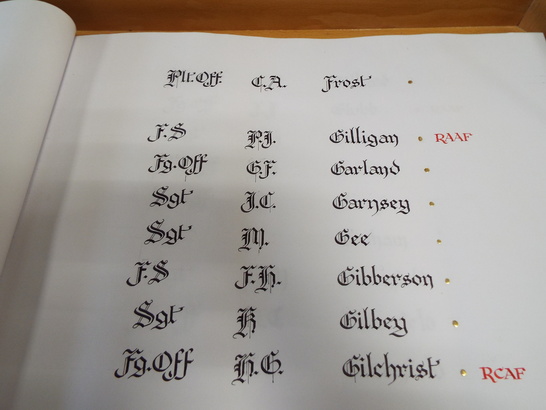 Plt.Off. C.A. Frost
F.S P.J. Gilligan RAAF
Fg.Off G.F. Garland
Sgt J.C. Garnsey
Sgt M. Gee
F.S F.H. Gibberson
Sgt K Gilbey
Fg.Off H.G. Gilchrist RCAF